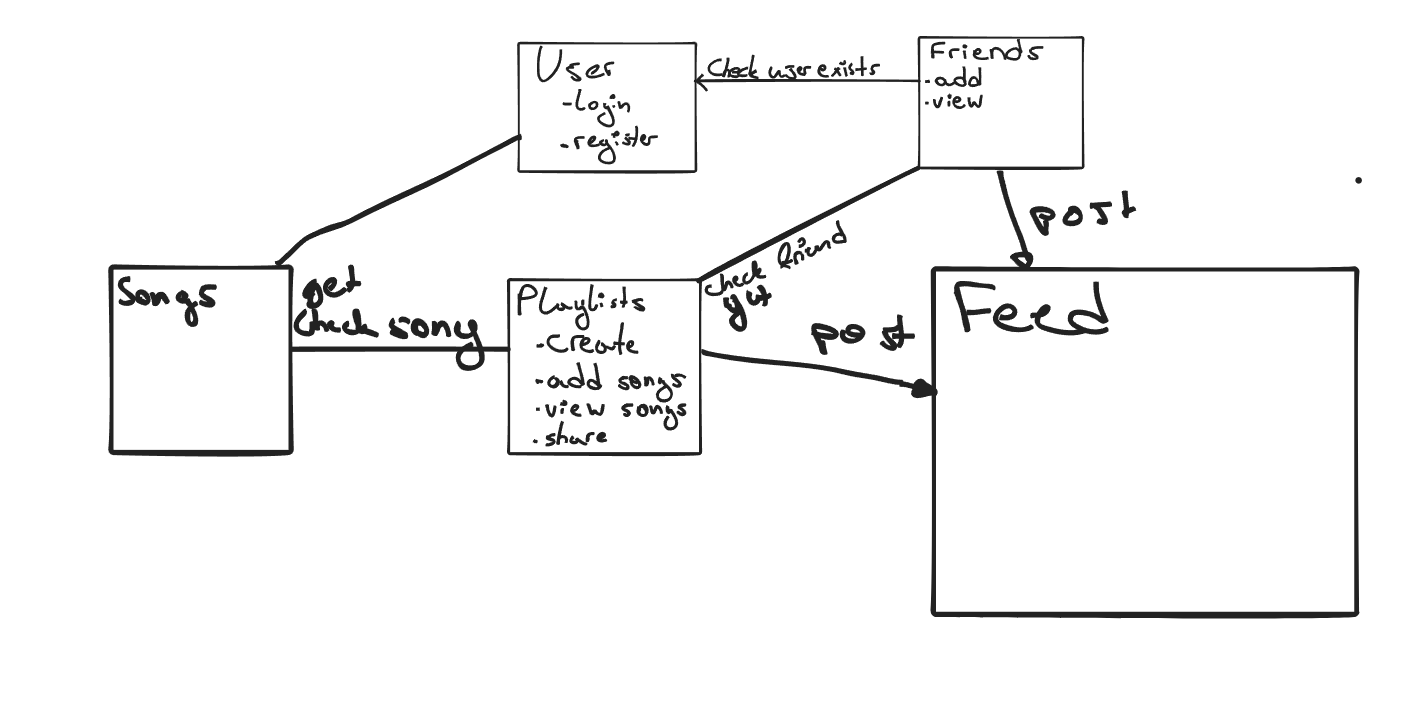 User
-login
-register
Check user exists
Friends
-add
-view
post
Songs
get
check song
Playlists
-Create
-add songs
-view songs
-share
check friend
post
Feed